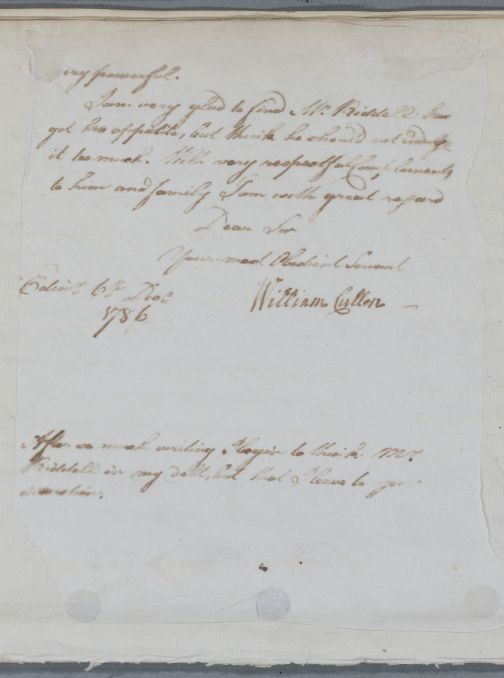 very powerful.
I am very glad to find Mr. Riddell has
got his appetite, but think he should not indulge
it too much. With very respectful Complements
to him and family I am with great regard
Dear Sir
Your most Obedient Servant
Edinr. 6th Decr.
1786
William Cullen
After so much writing I begin to think Mr.
Riddell in my debt, but that I leave to your